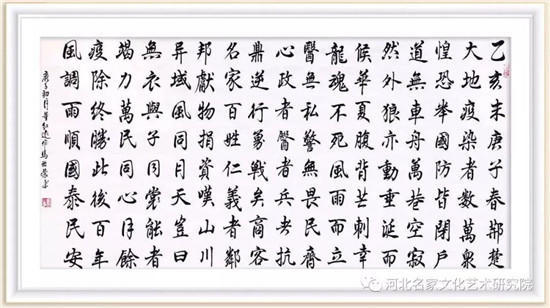 乙亥末庚子春荊楚
大地疫染者數萬衆
惶恐舉國防皆閉戶
道無車舟萬巷空寂
然外狼亦動垂涎而
候華夏腹背芒刺幸
龍魂不死風雨而立
醫無私警無畏民齊
心政者督者兵者抗
鼎逆行勇戰矣商客
名家百姓仁義者鄰
邦獻物捐資嘆山川
異域風同月天豈曰
無衣與子同裳能者
竭力萬民同心月餘
疫除終勝此後百年
風調雨順國泰民安
庚子初月
河北名家文化艺术研究院